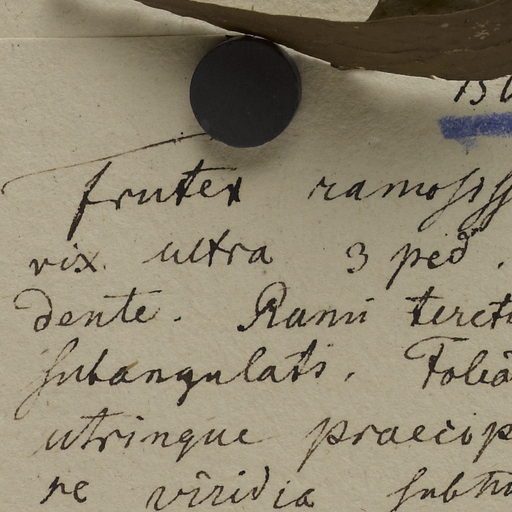 Frutex ramosiss
vix ultra 3 ped.
dente. Rami tereti
subangulatis. Folia
utrinque praecip
ne viridia subtu